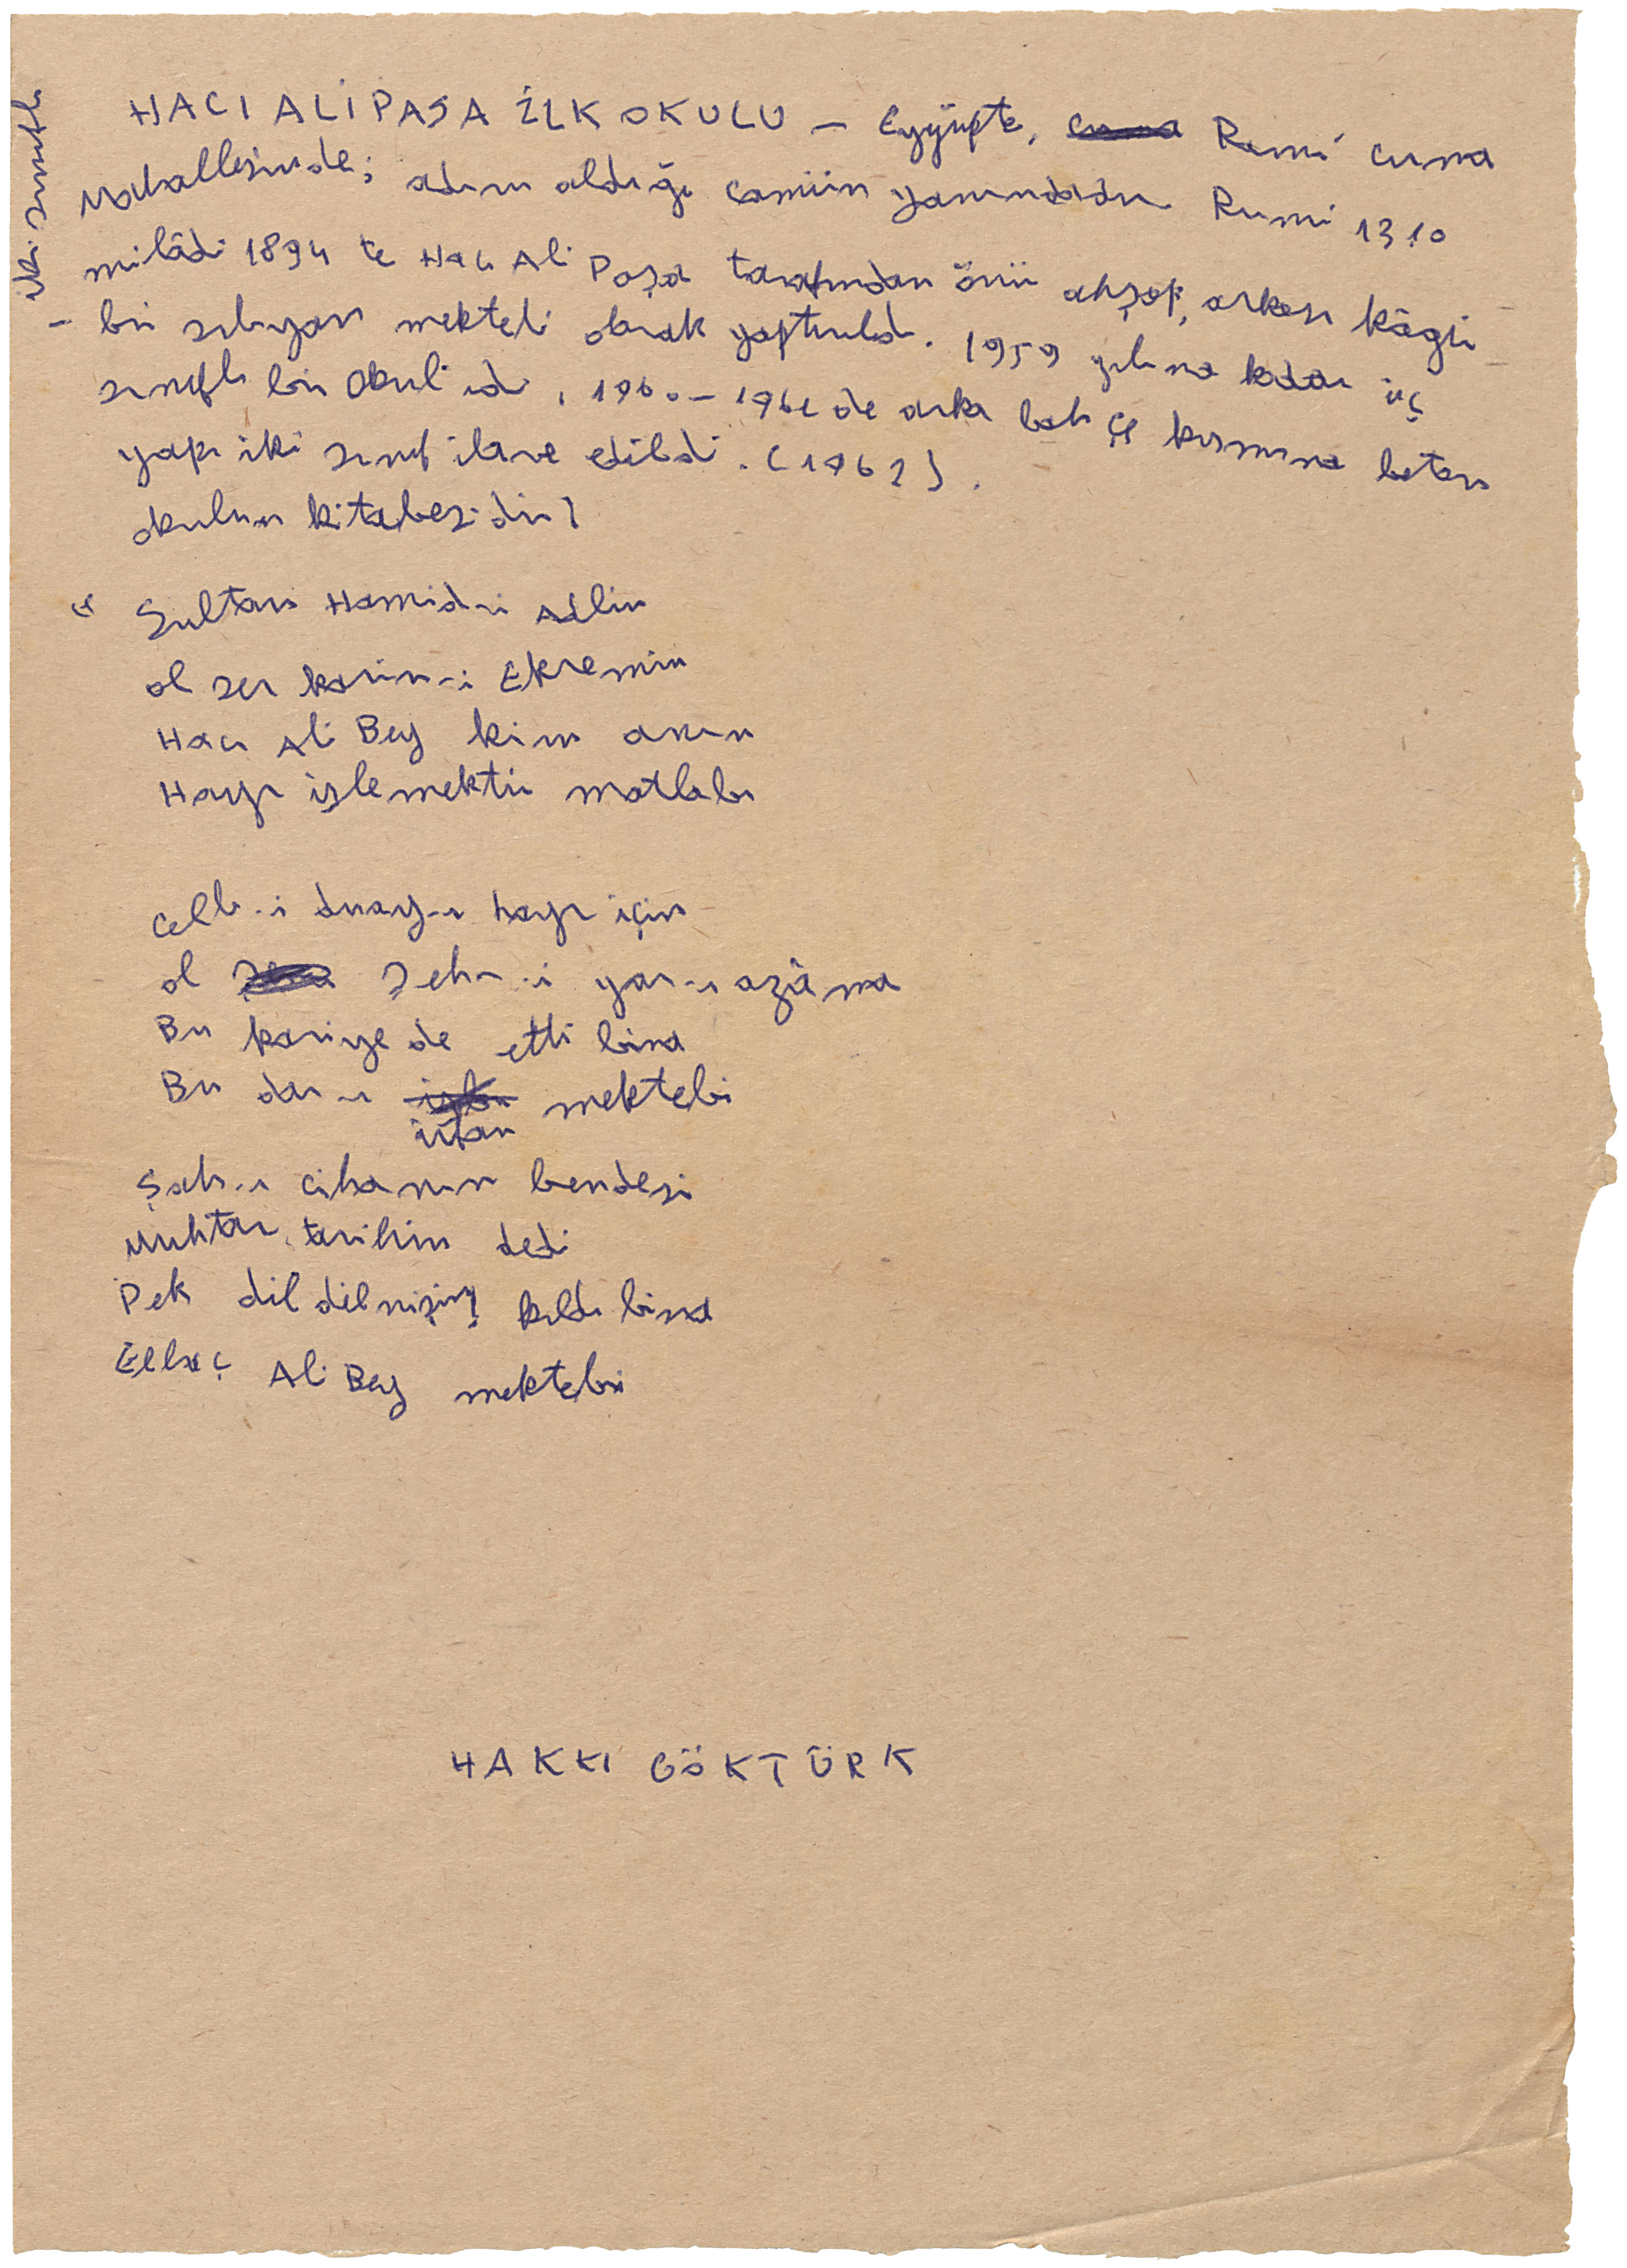 HACI ALİ PAŞA İLKOKULU — Eyyüpte, Rami cuma
Mahallesinde; adını aldığı camiin yanındadır Rumi 1310
milâdi 1894 te Hacı Ali Paşa tarafından önü ahşap, arkası kâgir
iki sınıflı
— bir sıbyan mektebi olarak yaptırıldı. 1959 yılına kadar üç
sınıflı bir okul idi, 1960-1961 de arka bahçe kısmına beton
yapı iki sınıf ilave edildi. (1962).
okulun kitabesidir
" Sultan Hamid-i Adlin
ol ser karin-i Ekremin
Hacı Ali Bey kim anın
Hayr işlemektir matlabı
Celb-i duay-ı hayr için
ol Şeh-i
Bu kariyede etti bina
Bu dar-ı mektebi
irfan
Şah-ı cihanın bendesi
Muhtar tarihin dedi
Pek dil kıldı bina
Elhaç Ali Bey mektebi
HAKKI GÖKTÜRK